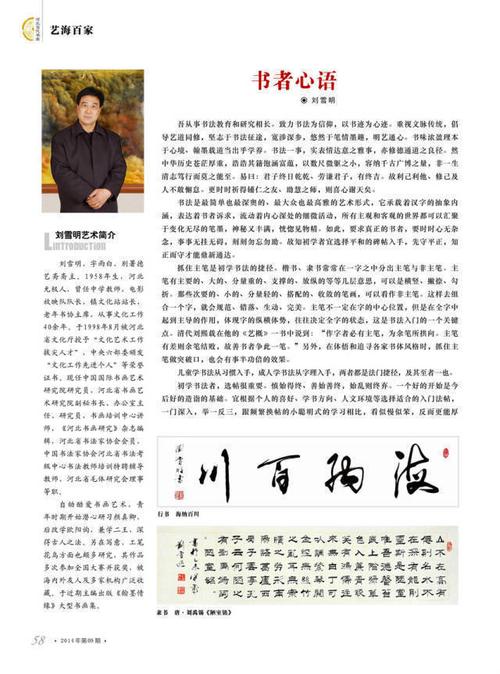 艺海百家
书者心语
◉ 刘雪明
吾从事书法教育和研究相长。致力书法为信仰，以书迹为心迹。重视文脉传统，倡
导艺道同修，坚志于书法征途，宽涉深参，悠然于笔情墨趣，明艺通心。书味浓盖理本
于心境，翰墨载道当出乎学养。书法一事，实表情达意之雅事，亦修德通道之良径。然
中华历史苍茫厚重，浩浩其籍饱涵富蕴，以数尺微躯之小，容纳千古广博之量，非一生
清志笃行而莫之能至。易曰：君子终日乾乾，劳谦君子，有终吉。故利己利他、修己及
人不敢懈怠。更时时祈得辅仁之友、助慧之师，则吾心谢天矣。
书法是最简单也最深奥的，最大众也最高雅的艺术形式，它承载着汉字的抽象内
涵，表达着书者诉求，流动着内心深处的细微活动，所有主观和客观的世界都可以汇聚
于变化无尽的笔墨，神秘又丰满，恍惚见物精。如此，要求真正的书者，要时时心无杂
念，事事无挂无碍，刻刻勿忘勿助。故知初学者宜选择平和的碑帖入手，先守平正，知
正而守才能鼎新通达。
抓住主笔是初学书法的捷径。楷书、隶书常常在一字之中分出主笔与非主笔。主
笔有主要的、大的、分量重的、支撑的、放纵的等等几层意思，可以是横竖、撇捺、勾
折。那些次要的、小的、分量轻的、搭配的、收敛的笔画，可以看作非主笔。这样去组
合一个字，就会规范、错落、生动、完美。主笔不一定在字的中心位置，但是在全字中
起到主导的作用，体现字的纵横体势，往往决定全字的状态，这是书法入门的一个关键
点。清代刘熙载在他的《艺概》一书中说到：“作字者必有主笔，为余笔所拱向。主笔
有差则余笔结败，故善书者争此一笔。”另外，在体悟和追寻各家书体风格时，抓住主
笔做突破口，也会有事半功倍的效果。
儿童学书法从习惯入手，成人学书法从字理入手，两者都是法门捷径，及其至者一也。
初学书法者，选帖很重要。慎始得终、善始善终，始乱则终弃。一个好的开始是今
后好的造诣的基础。宜根据个人的喜好、学书方向、人文环境等选择适合的入门法帖，
一门深入，举一反三，跟频繁换帖的小聪明式的学习相比，看似慢似笨，反而更能厚
刘雪明艺术简介
Introduction
刘雪明，字雨白，别署德
艺斋斋主。1958年生，河北
无极人，曾任中学教师，电影
放映队队长，镇文化站站长，
老年书协主席。从事文化工作
40余年，于1998年8月被河北
省文化厅授予“文化艺术工作
拔尖人才”，中央六部委颁发
“文化工作先进个人”等荣誉
证书。现任中国国际书画艺术
研究院研究员、河北省书画艺
术研究院副秘书长、办公室主
任、研究员、书画培训中心讲
师，《河北书画研究》杂志编
辑，河北省书法家协会会员，
中国书法家协会河北省书法考
级中心书法教师培训特聘辅导
教师，河北省毛体研究会理事
等职。
自幼酷爱书画艺术，青
年时期开始潜心研习颜真卿，
后改学欧阳询，兼学二王，深
得古人之法。另在写意、工笔
花鸟方面也颇多研究，其作品
多次参加全国大赛并获奖，被
海内外友人及多家机构广泛收
藏。于近期主编出版《翰墨情
缘》大型书画集。
海纳百川
行书 海纳百川
隶书 唐·刘禹锡《陋室铭》
58 · 2014年第09期 ·